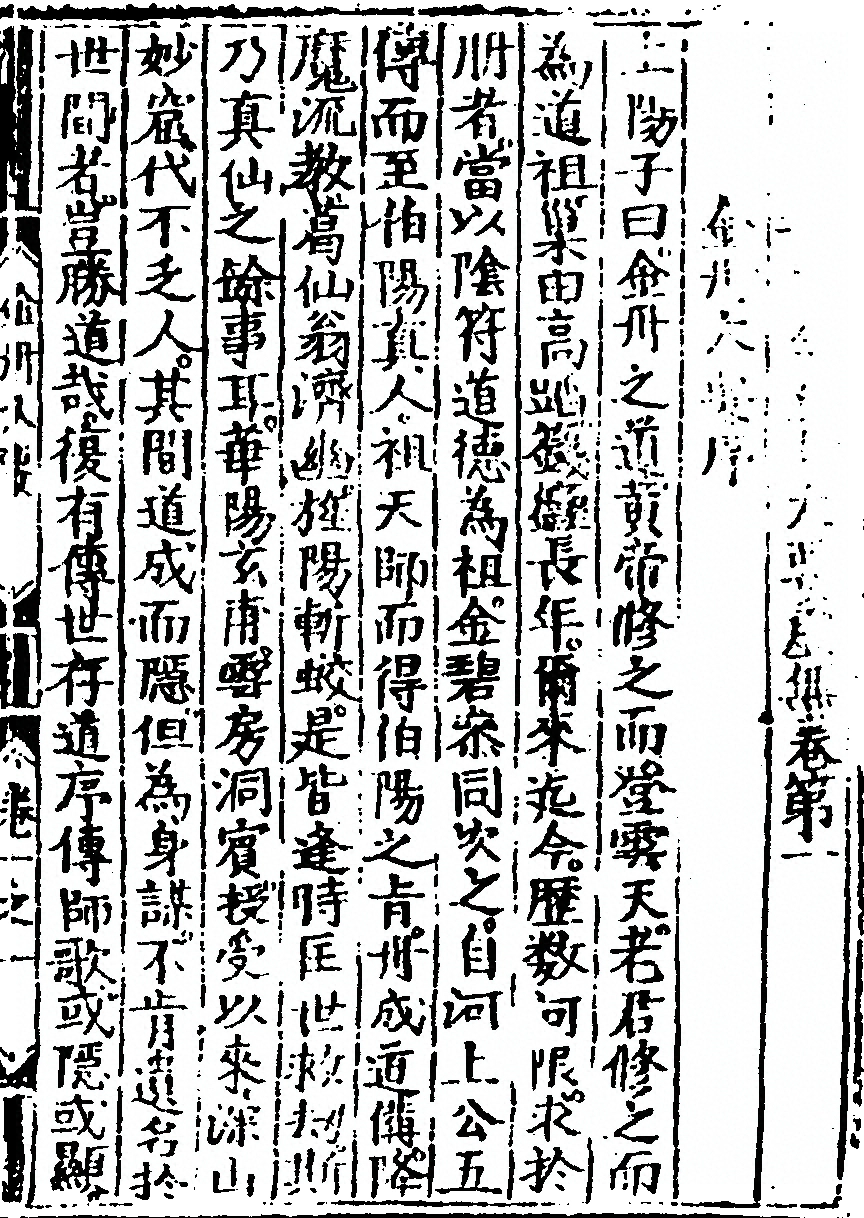 卷第一
金丹大要序
上陽子曰金丹之道黃帝修之而登雲天老君修之而
為道祖巢由高蹈籛鏗長年爾來迄今歷數何限求於
冊者當以陰符道德為祖金碧叅同次之自河上公五
傳而至伯陽真人祖天師而得伯陽之旨丹成道備降
魔流教葛仙翁濟幽旌陽斬蛟是皆逢時匡世救劫斯
乃真仙之餘事耳華陽玄甫雲房洞賓授受以來深山
妙窟代不乏人其間道成而隱但為身謀不肯遺名於
世間者豈勝道哉復有傳世存道序傳師歌或隱或顯
卷一之一